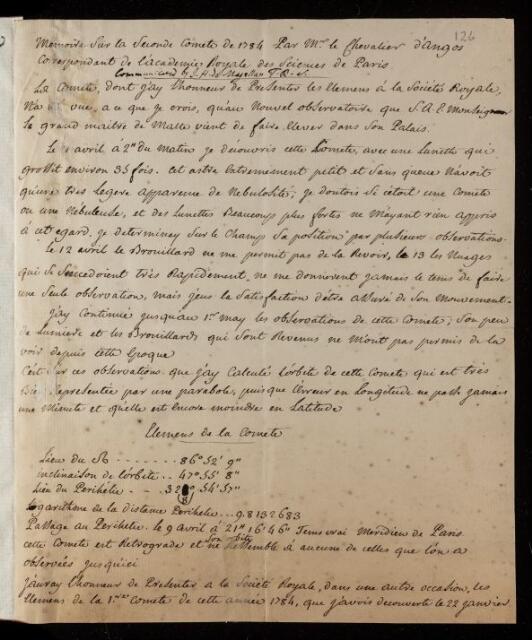 126
Memoire Sur la Seconde Comete de 1784 Par Mr. le Chevalier d'Angos
Correspondant de l'academie Royale des Sciences de Paris
Communicated by J. H. de Magellan F.R.S.
La Comete, dont j'ay l'honneur de Presenter les Elemens à la Société Royale,
N'a été vue, a ce que je crois, qu'au Nouvel observatoire que S.A.E. Monseigneur
le grand maitre de Malte vient de faire Elever dans Son Palais.
Le avril à 2h du Matin je decouvris cette Comete, avec une Lunette qui
grossit environ 35 fois. Cet astre Extremement petit et Sans queue N'avoit
qu'une très Legere apparence de Nebulosité, je doutois Si c'étoit une Comete
ou une Nebuleuse, et des Lunettes Beaucoup plus fortes ne M'ayant rien appris
à cet egard, je determinay Sur le Champs Sa position par plusieurs observations.
Le 12 avril le Brouillard ne me permit pas de la Revoir, le 13 les Nuages
qui Se Succedoient très Rapidement, ne me donnerent jamais le tems de faire
une Seule observation, Mais j'eus la Satisfaction d'etre assuré de Son Mouvement.
J'ay Continué jusqu'au 1er may les observations de cette Comete, Son peu
de Lumiere et les Brouillards qui Sont Revenus ne M'ont pas permis de la
voir depuis cette Epoque
C'est Sur ces observations que j'ay Calculé l'orbite de cette Comete qui est très
Bien Representée par une parabole, puisque l'erreur en Longitude ne passe jamais
une Minute et qu'elle est Encore moindre en Latitude
Elemens de la Comete
Lieu du ☊ . . . . . . . . 86° 52' 9"
inclinaison de l'orbite . . 47° 55' 8"
Lieu du Perihelie . . . 54' 57"
Logarithme de la distance Perihelie . . . 9.8132683
Passage au Perihelie le 9 avril à 21h 16' 46" Tems vrai Meridien de Paris
cette Comete est Retrograde et Son orbite ne Ressemble à aucune de celles que l'on a
observées jusqu'ici
J'auray l'honneur de Presenter a la Société Royale, dans une autre occasion, les
Elemens de la 1ere Comete de cette année 1784, que j'avois decouverte le 22 janvier